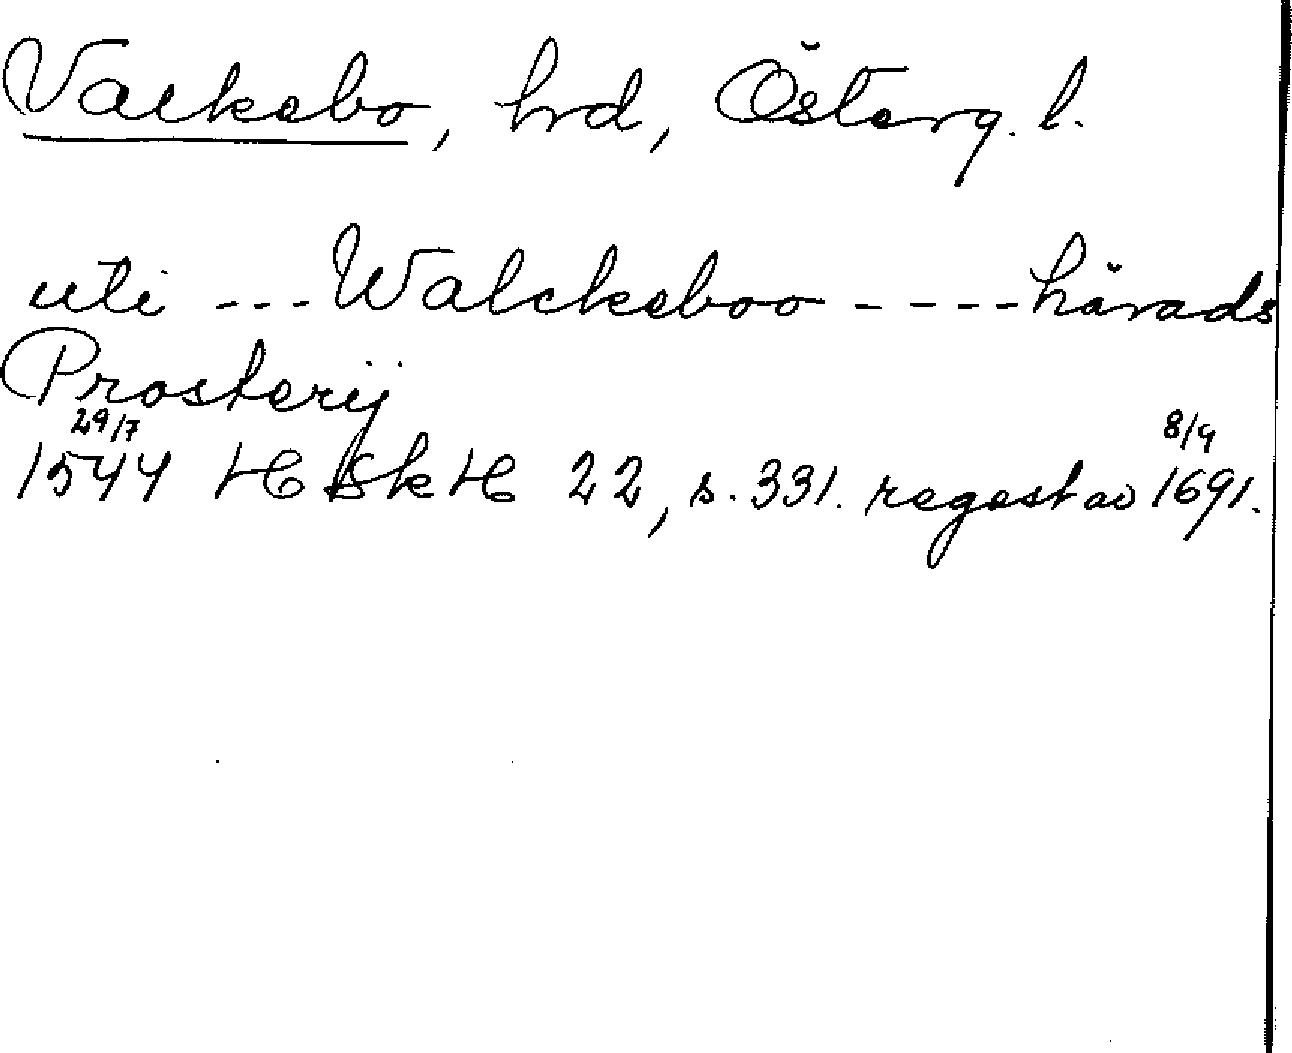 Valkebo, hrd, Österg. l.
uti --- Walckeboo ---- härads
Prosterij
29/7 8/9
1544 HSkH 22, s. 331. regest av 1691.